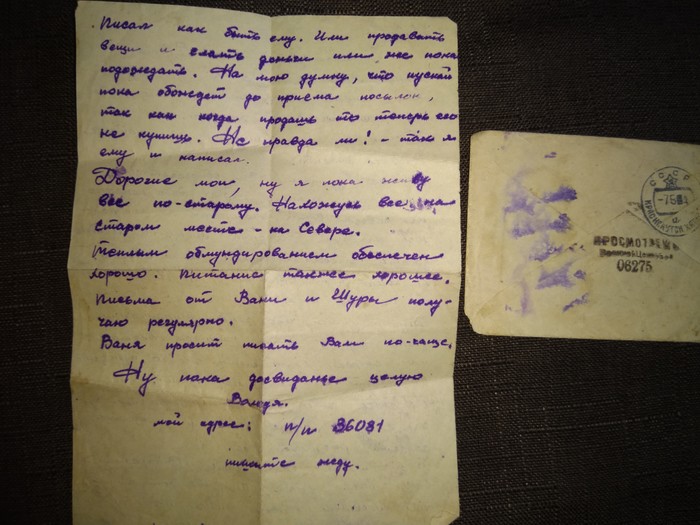 Писал как быть ему. Или продавать
вещи и слать деньги или же пока
подождать. На мою думку, что пускай
пока обождет до приема посылок,
так как когда продашь то теперь его
не купишь. Не правда ли! – так я
ему и написал.
Дорогие мои, ну я пока живу
все по-старому. Нахожусь все на
старом месте – на Севере.
Теплым обмундированием обеспечен
хорошо. Питание также хорошее.
Письма от Вани и Шуры полу-
чаю регулярно.
Ваня просит писать Вам по-чаще.
Ну пока досвиданье целую
мой адрес: п/п 36081
пишите жду.
СССР
ПРОСМОТРЕНО
Военной Цензурой
06275